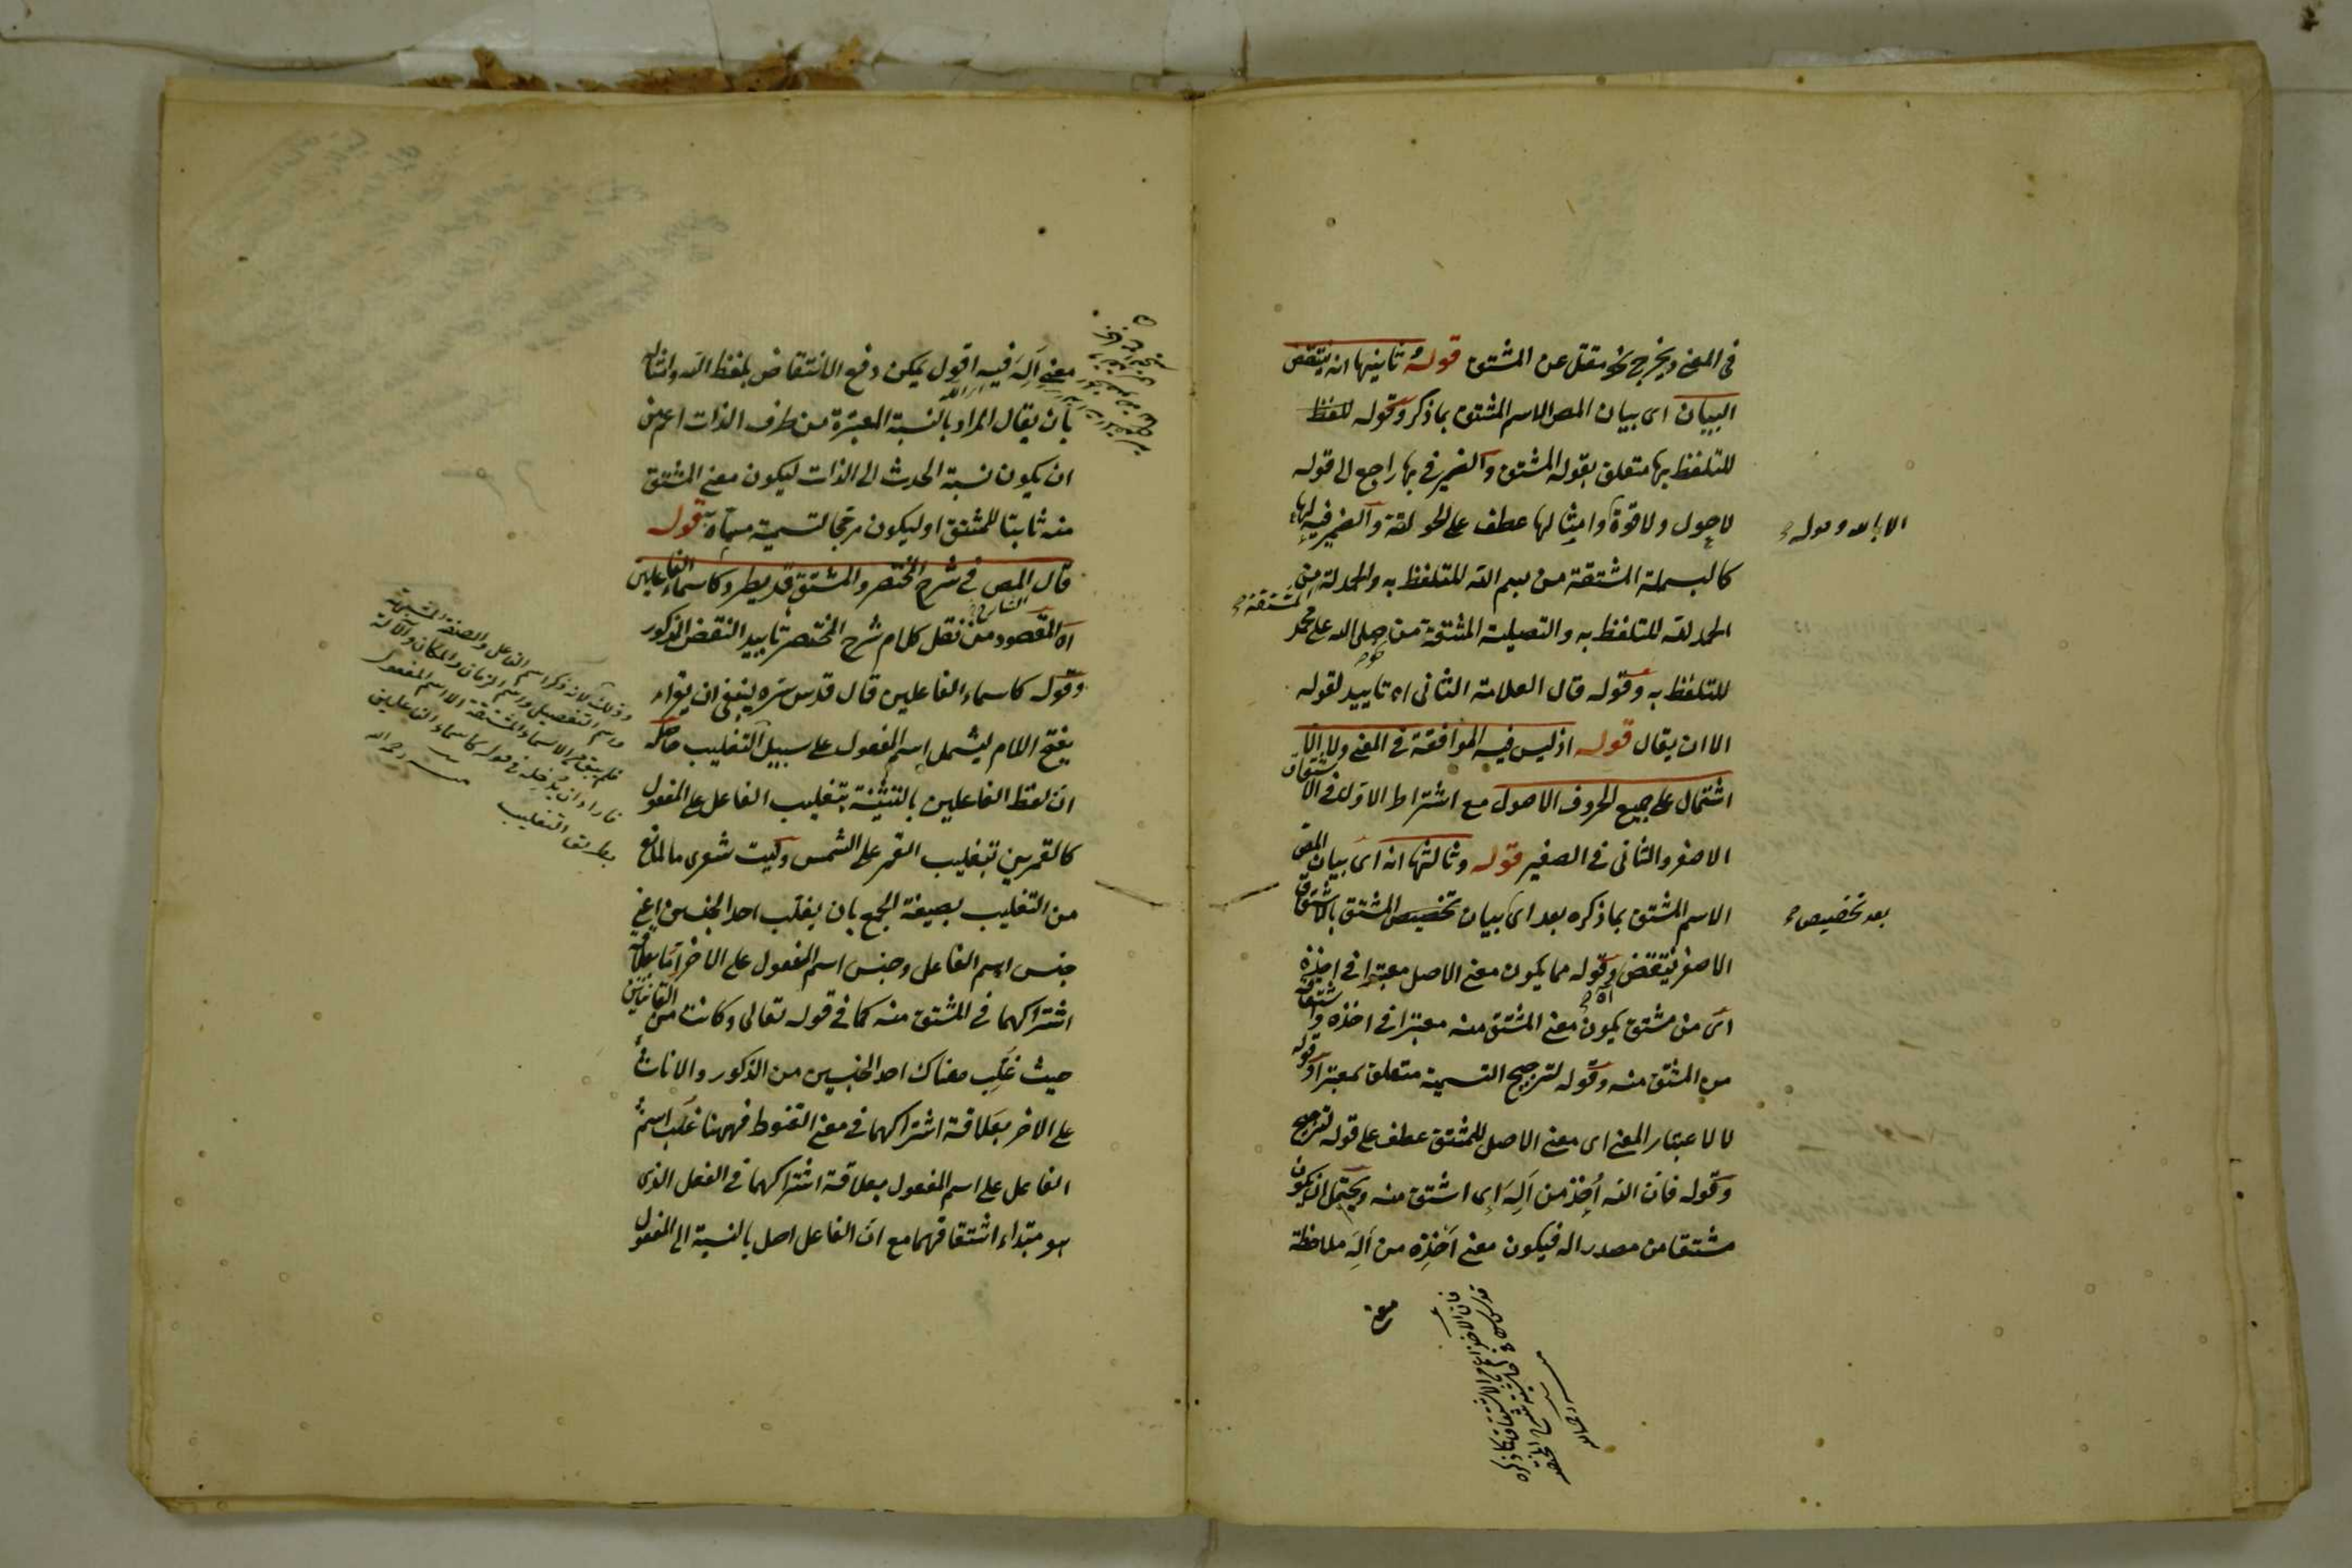 فى المعنى ويخرج نحو مقتل عن المشتق قوله ثانيها انه ينتقض
البيان اى بيان المص الاسم المشتق بما ذكر وقوله للفظ
للتلفظ بها متعلق بقوله المشتق والضمير فى بها راجع الى قوله
لا حول ولا قوة وامثالها عطف على الحولقة والضمير فيه لها
الا بالله وقوله صح
كالبسملة المشتقة من بسم الله للتلفظ به والحمدلة من
المشتقة صح
الحمد لله للتلفظ به والتصلية المشتقة من صلى الله على محمد
للتلفظ به وقوله قال العلامة الثانى اه تاييد لقوله
الا ان يقال قوله اذ ليس فيه الموافقة فى المعنى ولا
اشتمال على جميع الحروف الاصول مع اشتراط الاول فى الاشتقاق
الاصغر والثانى فى الصغير قوله وثالثها انه اى بيان المص
الاسم المشتق بما ذكره بعد اى بيان تخصيص المشتق بالاشتقاق
بعد تخصيص صح
الاصغر ينتقض وقوله مما يكون معنى الاصل معتبرا فى اخذه
اى من مشتق يكون معنى المشتق منه معتبرا فى اخذه واشتقاقه
من المشتق منه وقوله لترجيح التسمية متعلق بمعتبرا وقوله
لا لاعتبار المعنى اى معنى الاصل للمشتق عطف على قوله لترجيح
وقوله فان اله أخذ من أله اى اشتق منه ويحتمل ان يكون
مشتقا من مصدر اله فيكون معنى اخذه من أله ملاحظة
معنى
فان الاخذ اعم من الاشتقاق كما ذكره
قدس سره فى حاشية شرح المختصر
منه رحمه الله
معنى أله فيه اقول يمكن دفع الانتقاض بلفظ اله وامثاله
بان يقال المراد بالنسبة المعتبرة من طرف الذات اعم من
ان يكون نسبة الحدث الى الذات ليكون معنى المشتق
منه ثابتا للمشتق او ليكون مرجحا لتسمية مسماه به قوله
قال المص فى شرح المختصر والمشتق قد يطرد كاسماء الفاعلين
اه المقصود من نقل كلام شرح المختصر تاييد النقض المذكور
وقوله كاسماء الفاعلين قال قدس سره ينبغى ان يقراء
بفتح اللام ليشمل اسم المفعول على سبيل التغليب حاصله
ان لفظ الفاعلين بالتثنية بتغليب الفاعل على المفعول
كالقمرين بتغليب القمر على الشمس وليت شعرى ما المانع
من التغليب بصيغة الجمع بان يغلب احد الجنسين اعنى
جنس اسم الفاعل وجنس اسم المفعول على الاخر بعلاقة
اشتراكهما فى المشتق منه كما فى قوله تعالى وكانت من القانتين
حيث غلب هناك احد الجنسين من الذكور والاناث
على الاخر بعلاقة اشتراكهما فى معنى القنوط فههنا غلب اسم
الفاعل على اسم المفعول بعلاقة اشتراكهما فى الفعل الذى
هو مبتداء اشتقاقهما مع ان الفاعل اصل بالنسبة الى المفعول
وذلك لانه ذكر اسم الفاعل والصفة المشبهة
واسم التفضيل واسم الزمان والمكان والآلة
فلم يبق من الاسماء المشتقة الا اسم المفعول
فاراد ان يدخله فى قوله كاسماء الفاعلين
بطريق التغليب منه رحمه الله